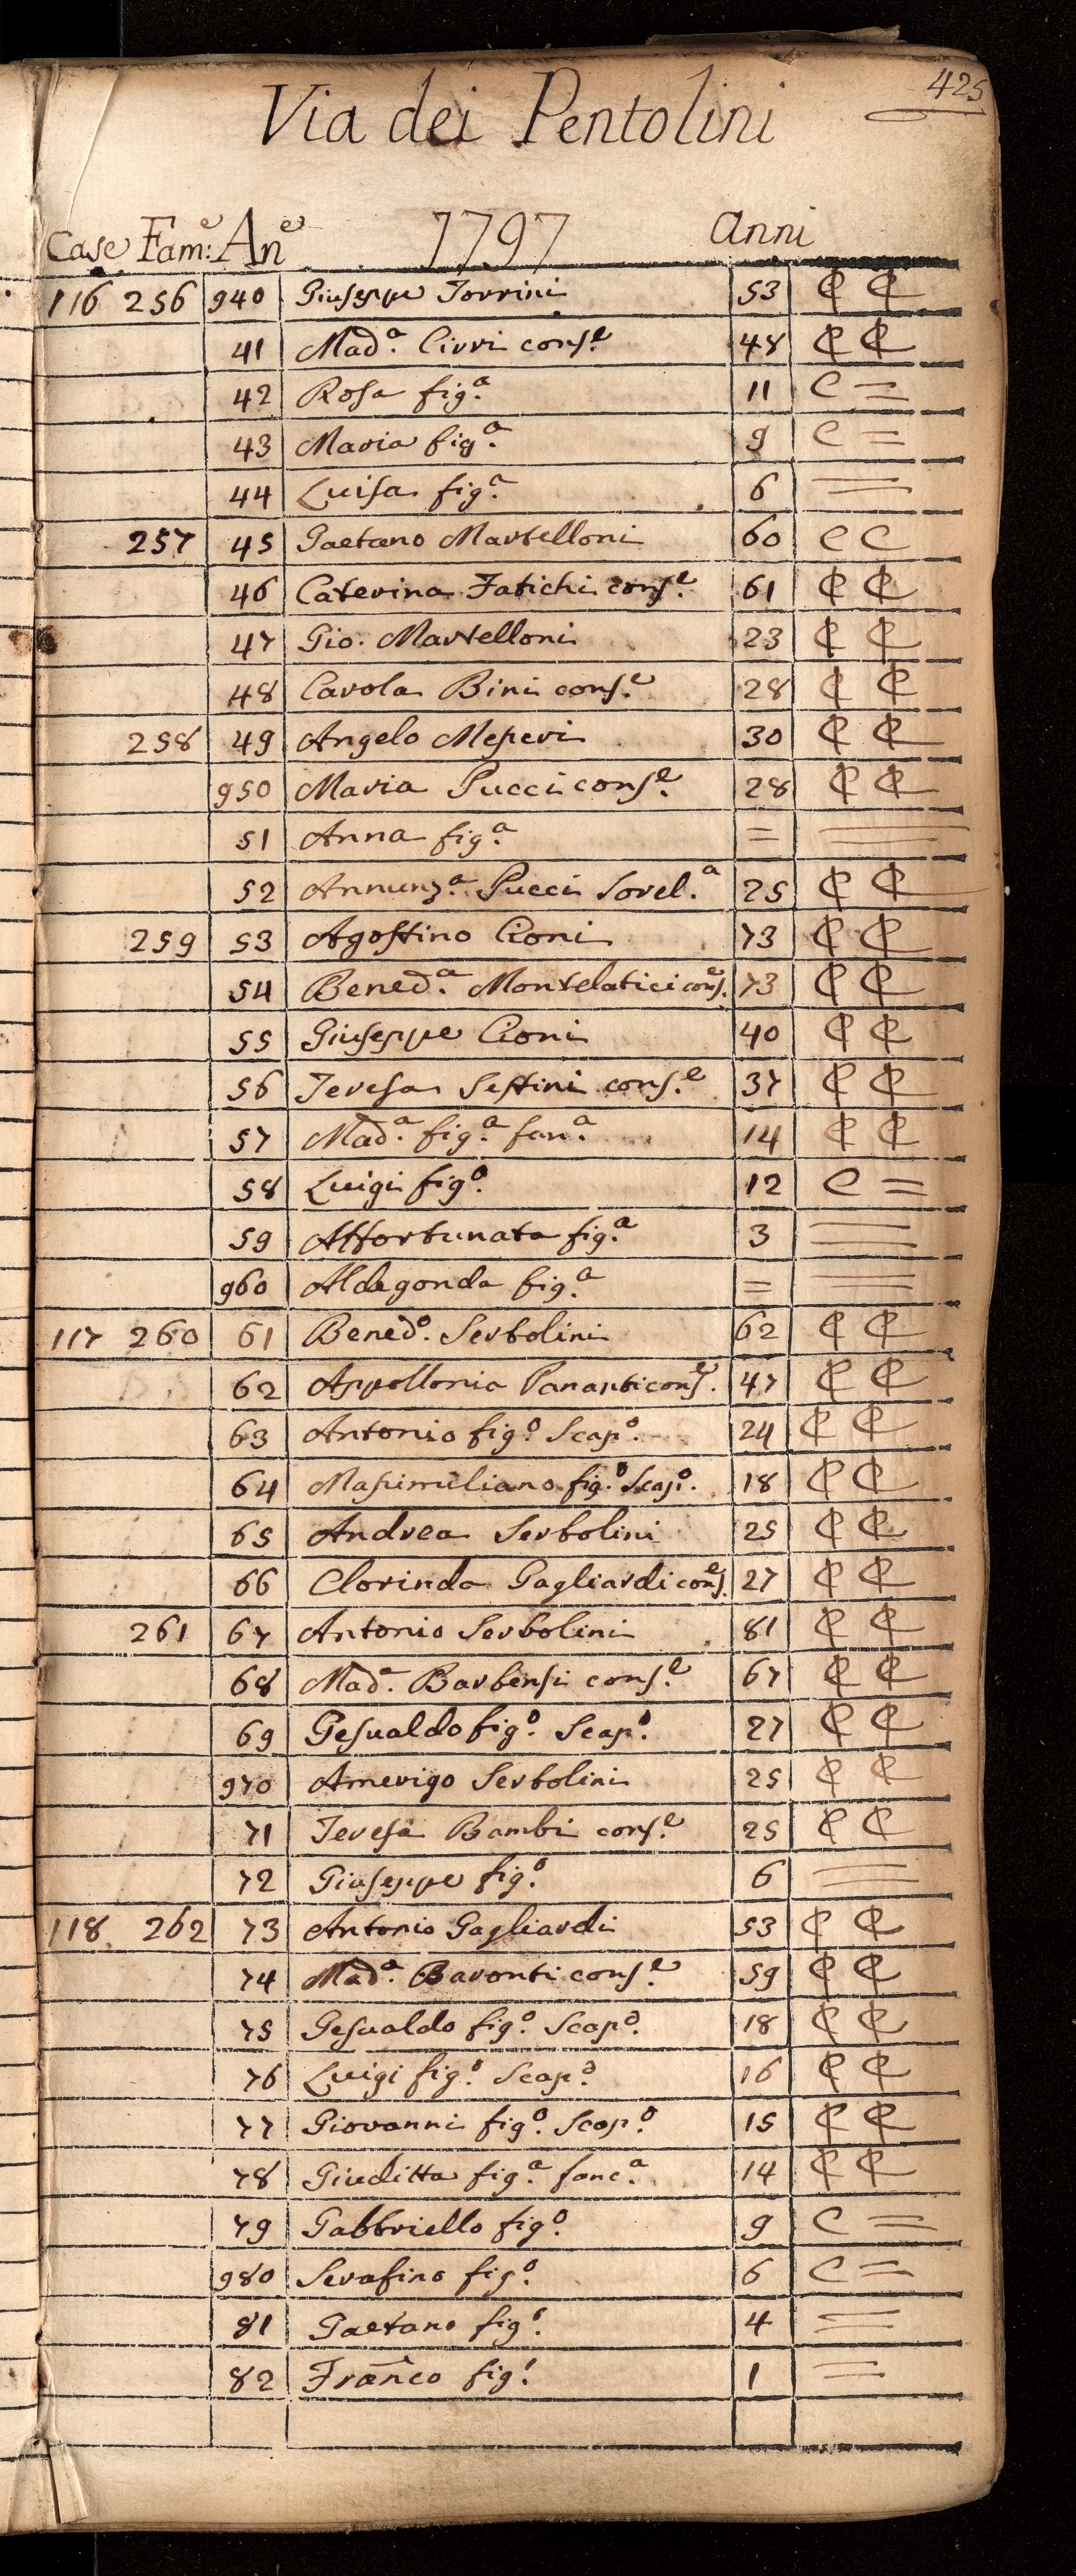 425
Via dei Pentolini
Case Fam:e An.e 1797 anni
116 256 940 Giuseppe Torrini 53 ₵ ₵
41 Mad.a Cirri cons.e 48 ₵ ₵
42 Rosa fig.a 11 C =
43 Maria fig.a 9 C =
44 Luisa fig.a 6 =
257 45 Gaetano Martelloni 60 C C
46 Caterina Fatichi cons.e 61 ₵ ₵
47 Gio. Martelloni 23 ₵ ₵
48 Carola Bini cons.e 28 ₵ ₵
258 49 Angelo Messeri 30 ₵ ₵
950 Maria Pucci cons.e 28 ₵ ₵
51 Anna fig.a = =
52 Annunz.a Pucci Sorel.a 25 ₵ ₵
259 53 Agostino Cioni 73 ₵ ₵
54 Bened.a Montelatici cons.e 73 ₵ ₵
55 Giuseppe Cioni 40 ₵ ₵
56 Teresa Sestini cons.e 37 ₵ ₵
57 Mad.a fig.a fan.a 14 ₵ ₵
58 Luigi fig.o 12 C =
59 Affortunata fig.a 3 =
960 Aldegonda fig.a = =
117 260 61 Bened.o Serbolini 62 ₵ ₵
62 Appollonia Pananti cons.e 47 ₵ ₵
63 Antonio fig.o Scap.o 24 ₵ ₵
64 Massimiliano fig.o Scap.o 18 ₵ ₵
65 Andrea Serbolini 25 ₵ ₵
66 Clorinda Gagliardi cons.e 27 ₵ ₵
261 67 Antonio Serbolini 81 ₵ ₵
68 Mad.a Barbensi cons.e 67 ₵ ₵
69 Gesualdo fig.o Scap.o 27 ₵ ₵
970 Amerigo Serbolini 25 ₵ ₵
71 Teresa Bambi cons.e 25 ₵ ₵
72 Giuseppe fig.o 6 =
118 262 73 Antonio Gagliardi 53 ₵ ₵
74 Mad.a Baronti cons.e 59 ₵ ₵
75 Gesualdo fig.o Scap.o 18 ₵ ₵
76 Luigi fig.o Scap.o 16 ₵ ₵
77 Giovanni fig.o Scap.o 15 ₵ ₵
78 Giuditta fig.a fanc.a 14 ₵ ₵
79 Gabbriello fig.o 9 C =
980 Serafino fig.o 6 C =
81 Gaetano fig.o 4 =
82 Franco fig.o 1 =